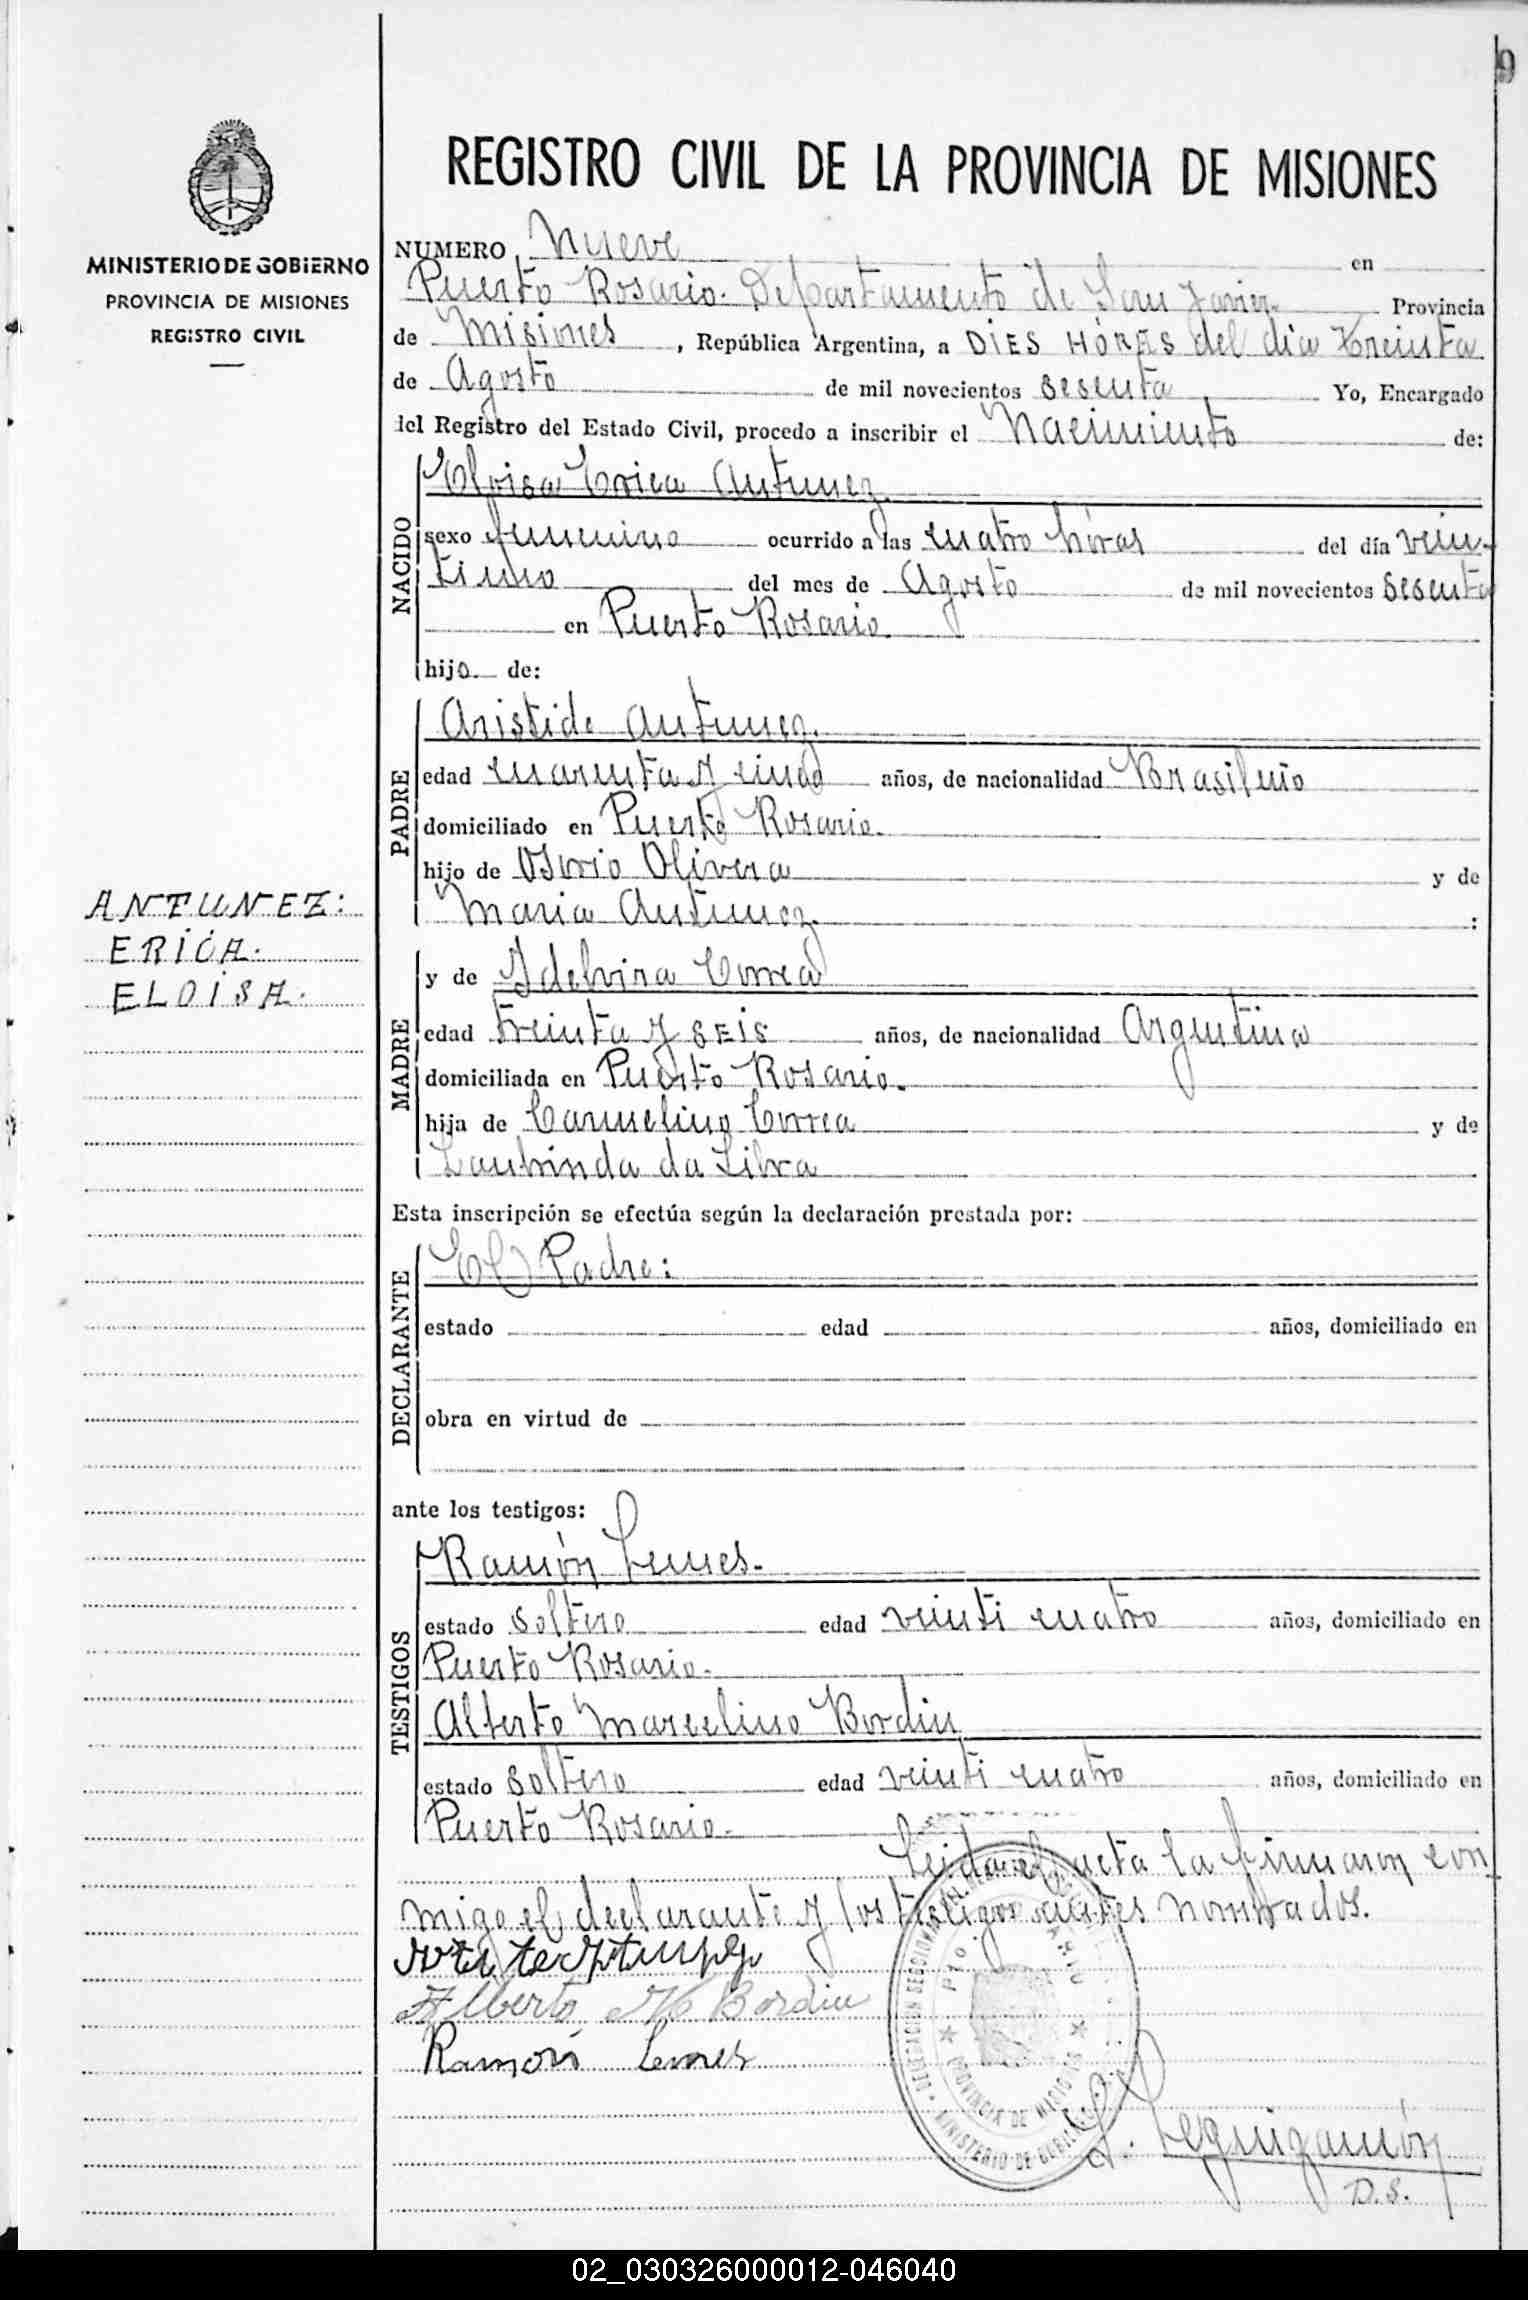 9
REGISTRO CIVIL DE LA PROVINCIA DE MISIONES
MINISTERIO DE GOBIERNO
PROVINCIA DE MISIONES
REGISTRO CIVIL
NUMERO Nueve en
Puerto Rosario. Departamento de San Javier. Provincia
de Misiones, República Argentina, a DIES HÓRAS del día treinta
de Agosto de mil novecientos sesenta Yo, Encargado
del Registro del Estado Civil, procedo a inscribir el Nacimiento de:
NACIDO
Eloisa Erica Antunez
sexo femenino ocurrido a las cuatro hóras del día vein-
tiuno del mes de Agosto de mil novecientos sesenta
en Puerto Rosario.
hijo de:
PADRE
Aristide Antunez.
edad cuarenta y cinco años, de nacionalidad Brasileño
domiciliado en Puerto Rosario.
hijo de Osorio Olivera y de
Maria Antunez. :
ANTUNEZ:
ERICA.
ELOISA.
MADRE
y de Idelvira Correa
edad treinta y seis años, de nacionalidad Argentina
domiciliada en Puerto Rosario.
hija de Carmelino Correa y de
da Silva
Esta inscripción se efectúa según la declaración prestada por:
DECLARANTE
El Padre:
estado edad años, domiciliado en
obra en virtud de
ante los testigos:
TESTIGOS
Ramón Lemes.
estado soltero edad veinti cuatro años, domiciliado en
Puerto Rosario.
Alberto Marcelino Bordin
estado soltero edad veinti cuatro años, domiciliado en
Puerto Rosario.
Leida el acta la firmaron con
migo el declarante y los testigos antes nombrados.
Alberto M Bordin
Ramón Lemes
DELEGACION SECCIONAL
PROVINCIA DE MISIONES
MINISTERIO DE GOBIERNO
L. Leguizamón
D.S.
02_030326000012-046040